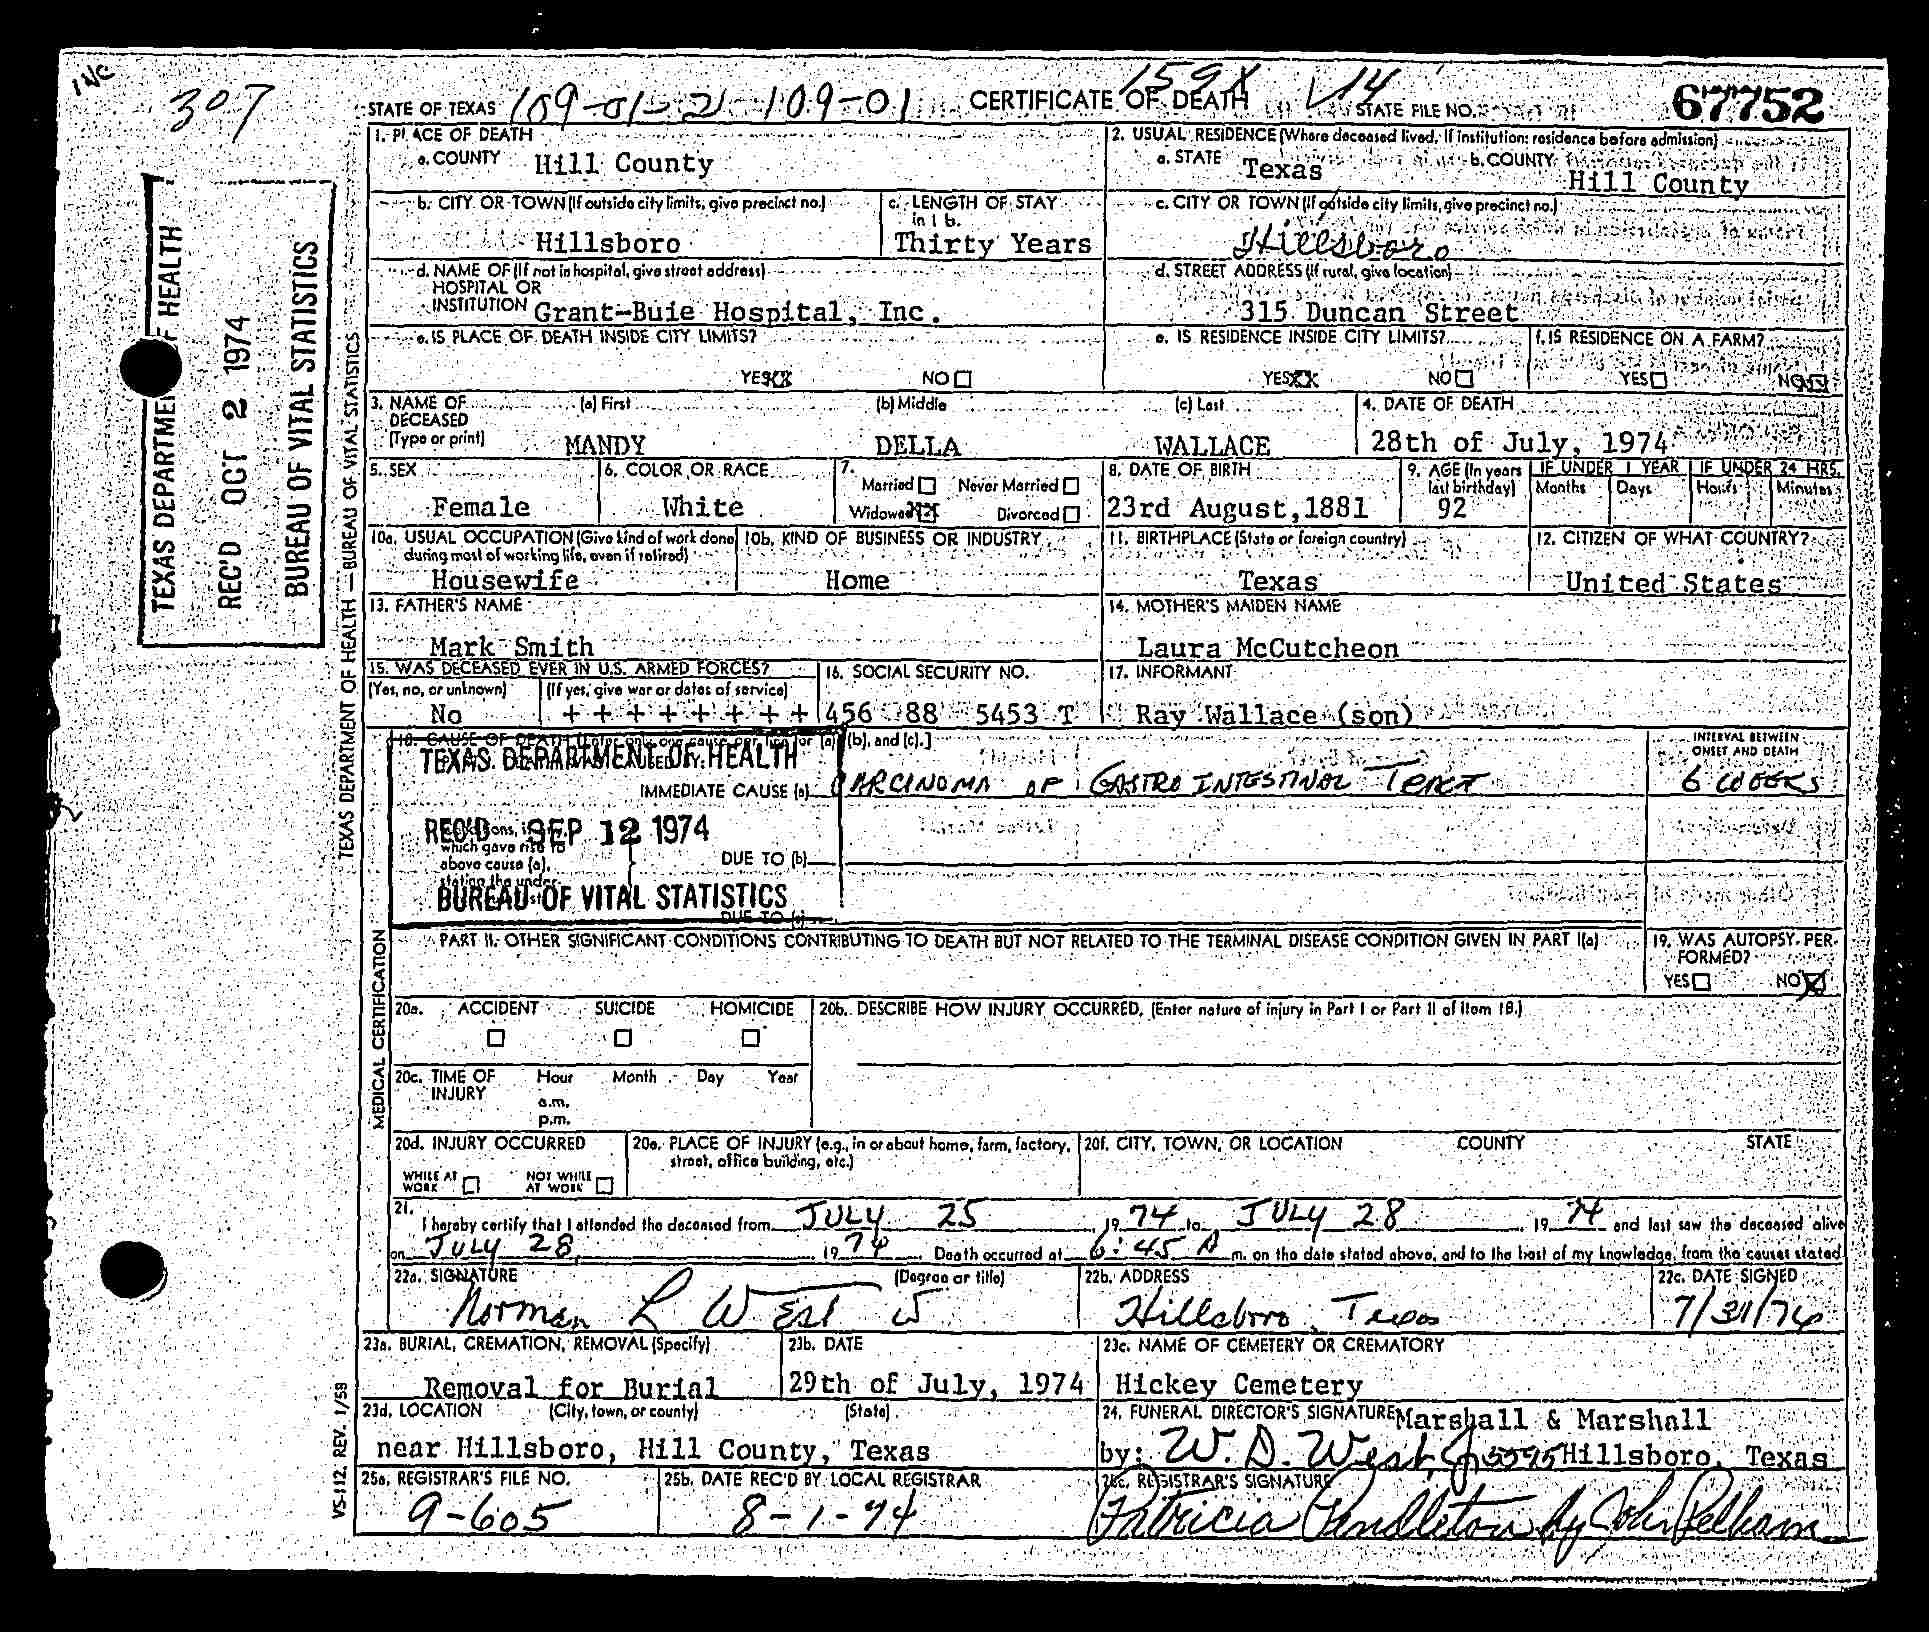 INC
307
STATE OF TEXAS 109-01-21 109-01 CERTIFICATE OF DEATH 159X V14 STATE FILE NO. 67752
1. PLACE OF DEATH
a. COUNTY Hill County
2. USUAL RESIDENCE (Where deceased lived. If institution: residence before admission)
a. STATE Texas b. COUNTY Hill County
b. CITY OR TOWN (If outside city limits, give precinct no.)
Hillsboro
c. LENGTH OF STAY
in 1 b.
Thirty Years
c. CITY OR TOWN (If outside city limits, give precinct no.)
Hillsboro
d. NAME OF (If not in hospital, give street address)
HOSPITAL OR
INSTITUTION Grant-Buie Hospital, Inc.
d. STREET ADDRESS (If rural, give location)
315 Duncan Street
e. IS PLACE OF DEATH INSIDE CITY LIMITS?
YES XX NO
e. IS RESIDENCE INSIDE CITY LIMITS?
YES XX NO
f. IS RESIDENCE ON A FARM?
YES NO
3. NAME OF (a) First (b) Middle (c) Last
DECEASED
(Type or print) MANDY DELLA WALLACE
4. DATE OF DEATH
28th of July, 1974
5. SEX
Female
6. COLOR OR RACE
White
7.
Married Never Married
Widowed XX Divorced
8. DATE OF BIRTH
23rd August, 1881
9. AGE (In years
last birthday)
92
IF UNDER 1 YEAR
Months Days
IF UNDER 24 HRS.
Hours Minutes
10a. USUAL OCCUPATION (Give kind of work done
during most of working life, even if retired)
Housewife
10b. KIND OF BUSINESS OR INDUSTRY
Home
11. BIRTHPLACE (State or foreign country)
Texas
12. CITIZEN OF WHAT COUNTRY?
United States
13. FATHER'S NAME
Mark Smith
14. MOTHER'S MAIDEN NAME
Laura McCutcheon
15. WAS DECEASED EVER IN U.S. ARMED FORCES?
(Yes, no, or unknown) (If yes, give war or dates of service)
No + + + + + + + +
16. SOCIAL SECURITY NO.
456 88 5453 T
17. INFORMANT
Ray Wallace (son)
18. CAUSE OF DEATH [Enter only one cause per line for (a), (b), and (c).]
IMMEDIATE CAUSE (a) CARCINOMA OF GASTRO INTESTINAL TRACT
INTERVAL BETWEEN
ONSET AND DEATH
6 WEEKS
which gave rise to
above cause (a),
stating the under-
DUE TO (b)
DUE TO (c)
TEXAS DEPARTMENT OF HEALTH
REC'D SEP 12 1974
BUREAU OF VITAL STATISTICS
PART II. OTHER SIGNIFICANT CONDITIONS CONTRIBUTING TO DEATH BUT NOT RELATED TO THE TERMINAL DISEASE CONDITION GIVEN IN PART I(a)
19. WAS AUTOPSY PER-
FORMED?
YES NO X
20a. ACCIDENT SUICIDE HOMICIDE
20b. DESCRIBE HOW INJURY OCCURRED. (Enter nature of injury in Part I or Part II of item 18.)
20c. TIME OF Hour Month Day Year
INJURY
a.m.
p.m.
20d. INJURY OCCURRED
WHILE AT WORK NOT WHILE AT WORK
20e. PLACE OF INJURY (e.g., in or about home, farm, factory,
street, office building, etc.)
20f. CITY, TOWN, OR LOCATION COUNTY STATE
21.
I hereby certify that I attended the deceased from JULY 25 1974 to JULY 28 1974 and last saw the deceased alive
on JULY 28, 1974. Death occurred at 6:45 A m. on the date stated above, and to the best of my knowledge, from the causes stated
22a. SIGNATURE (Degree or title)
Norman L West
22b. ADDRESS
Hillsboro, Texas
22c. DATE SIGNED
7/31/74
23a. BURIAL, CREMATION, REMOVAL (Specify)
Removal for Burial
23b. DATE
29th of July, 1974
23c. NAME OF CEMETERY OR CREMATORY
Hickey Cemetery
23d. LOCATION (City, town, or county) (State)
near Hillsboro, Hill County, Texas
24. FUNERAL DIRECTOR'S SIGNATURE Marshall & Marshall
by: W. D. West, Jr 5595 Hillsboro, Texas
25a. REGISTRAR'S FILE NO.
9-605
25b. DATE REC'D BY LOCAL REGISTRAR
8-1-74
25c. REGISTRAR'S SIGNATURE
Patricia Pendleton by John Pelham
TEXAS DEPARTMENT OF HEALTH
REC'D OCT 2 1974
BUREAU OF VITAL STATISTICS
TEXAS DEPARTMENT OF HEALTH — BUREAU OF VITAL STATISTICS
MEDICAL CERTIFICATION
VS-112, REV. 1/58